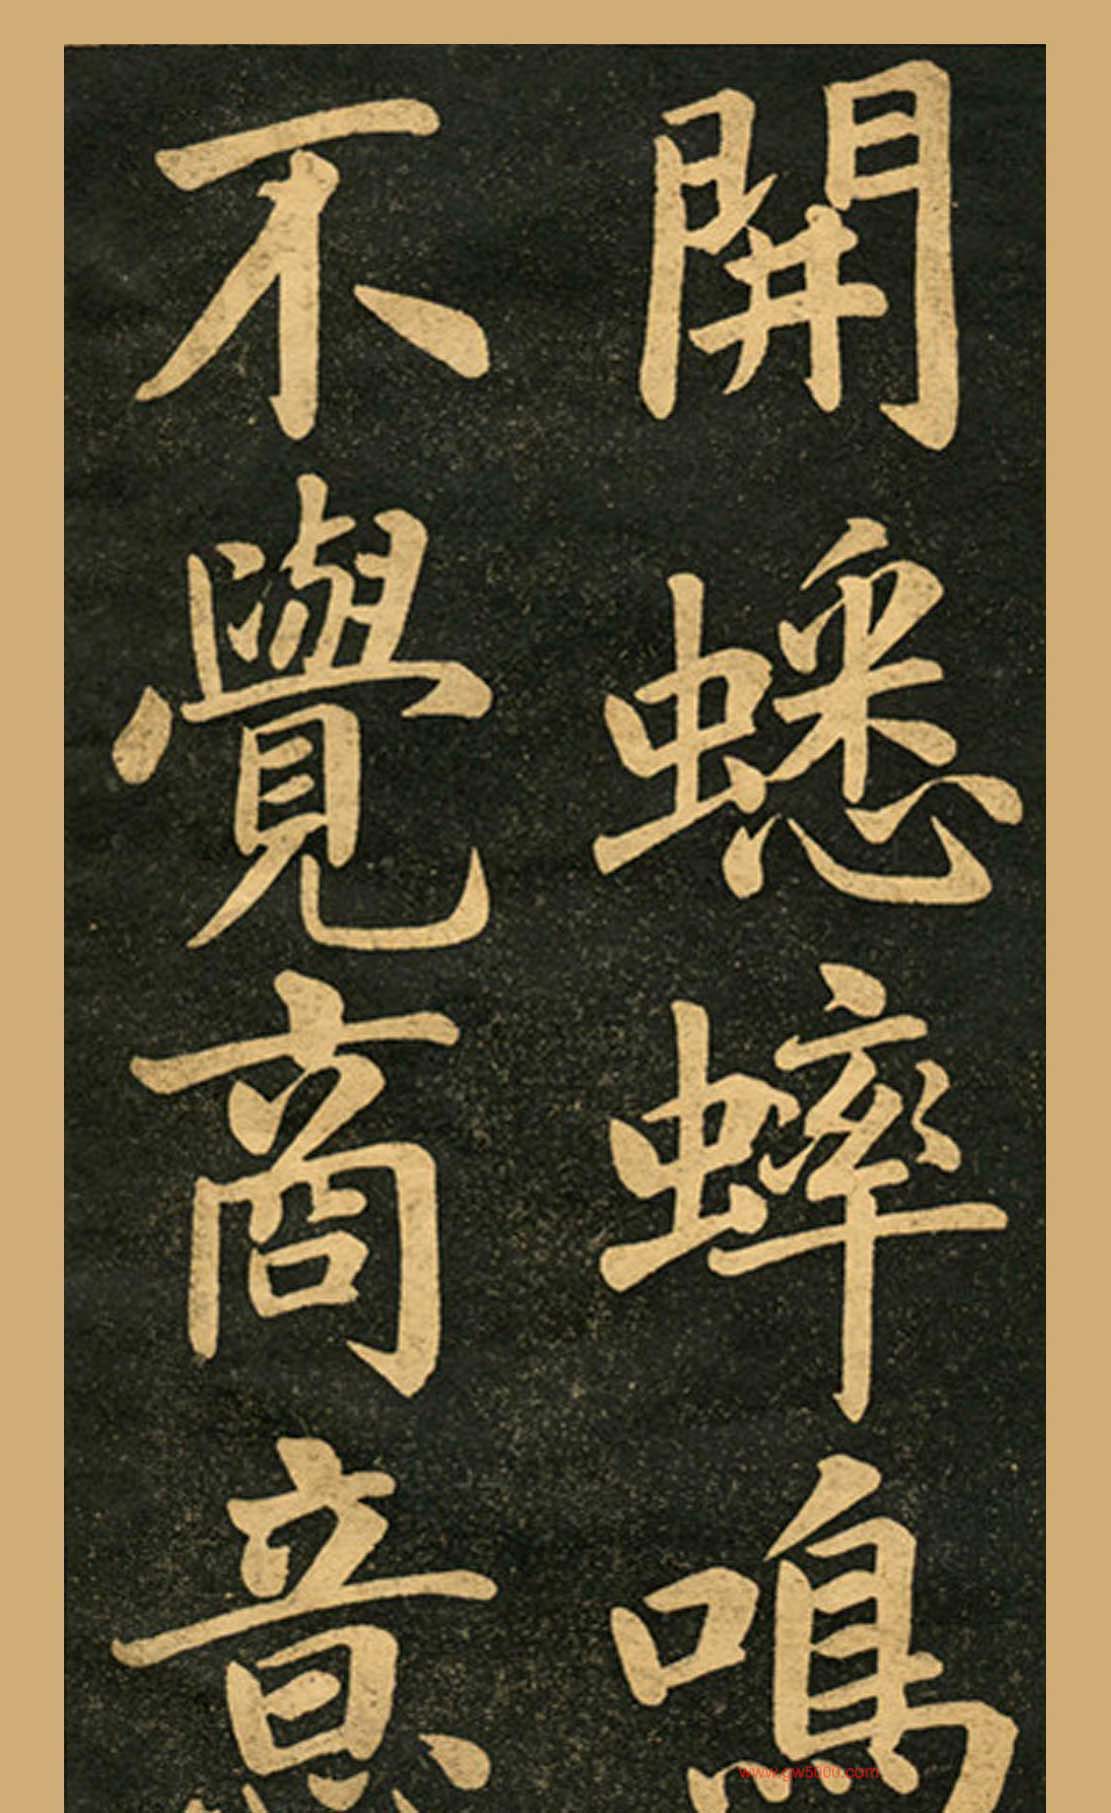 開蟋蟀鳴
不覺商意
www.gw5000.com